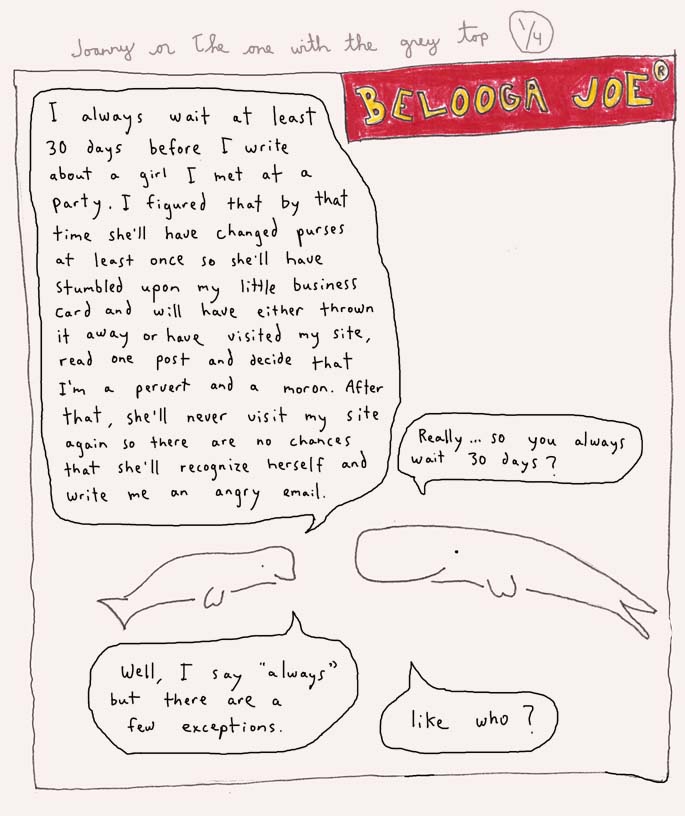 Joanny or The one with the grey top 1/4
BELOOGA JOE®
I always wait at least
30 days before I write
about a girl I met at a
party. I figured that by that
time she'll have changed purses
at least once so she'll have
stumbled upon my little business
card and will have either thrown
it away or have visited my site,
read one post and decide that
I'm a pervert and a moron. After
that, she'll never visit my site
again so there are no chances
that she'll recognize herself and
write me an angry email.
Really... so you always
wait 30 days?
Well, I say "always"
but there are a
few exceptions.
like who?